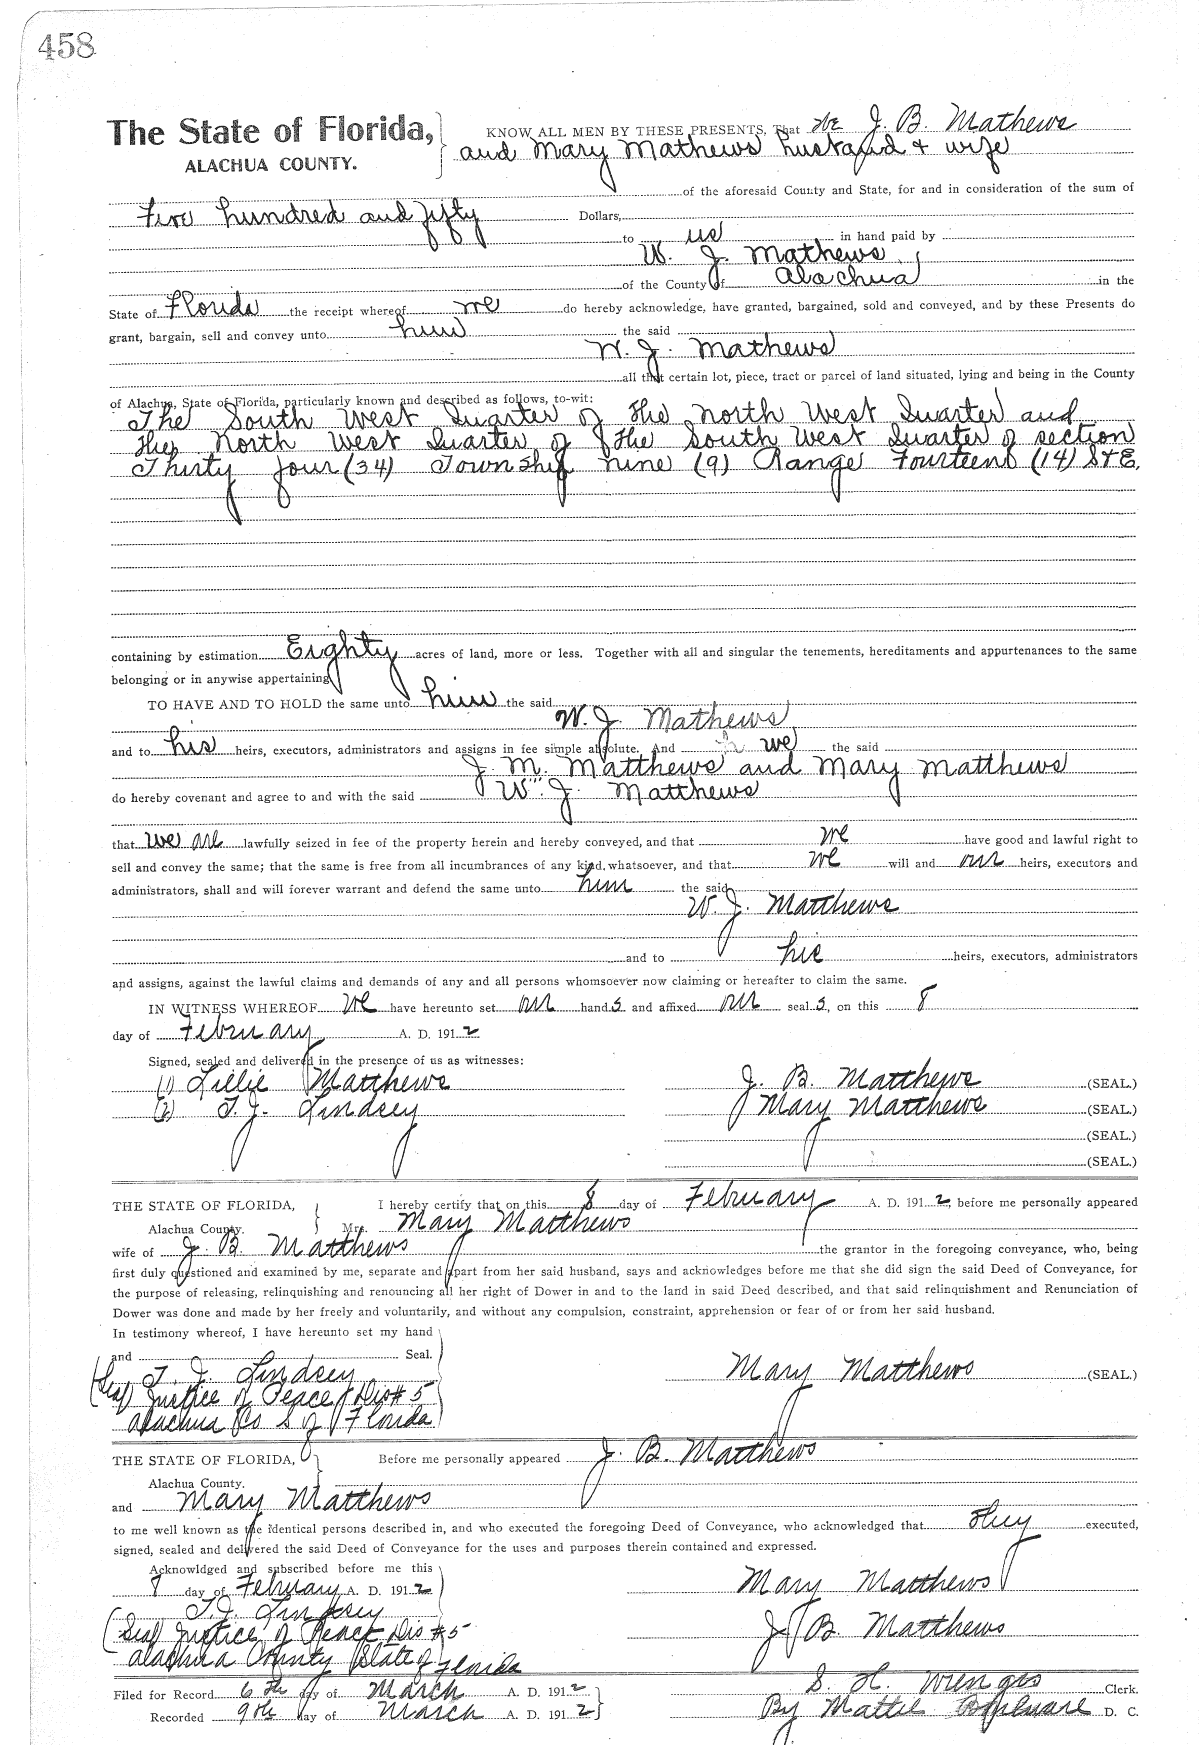 458
The State of Florida, KNOW ALL MEN BY THESE PRESENTS, That We J. B. Mathews
ALACHUA COUNTY. and Mary Mathews husband & wife
of the aforesaid County and State, for and in consideration of the sum of
Five hundred and fifty Dollars,
to us in hand paid by
W. J. Mathews
of the County of Alachua in the
State of Florida the receipt whereof we do hereby acknowledge, have granted, bargained, sold and conveyed, and by these Presents do
grant, bargain, sell and convey unto him the said
W. J. Mathews
all that certain lot, piece, tract or parcel of land situated, lying and being in the County
of Alachua, State of Florida, particularly known and described as follows, to-wit:
The South West Quarter of the North West Quarter and
the North West Quarter of the South West Quarter of section
Thirty four (34) Township nine (9) Range Fourteen (14) S & E.
containing by estimation Eighty acres of land, more or less. Together with all and singular the tenements, hereditaments and appurtenances to the same
belonging or in anywise appertaining
TO HAVE AND TO HOLD the same unto him the said
W. J. Mathews
and to his heirs, executors, administrators and assigns in fee simple absolute. And we the said
J. M. Matthews and Mary Matthews
do hereby covenant and agree to and with the said W. J. Matthews
that we are lawfully seized in fee of the property herein and hereby conveyed, and that we have good and lawful right to
sell and convey the same; that the same is free from all incumbrances of any kind, whatsoever, and that we will and our heirs, executors and
administrators, shall and will forever warrant and defend the same unto him the said
W. J. Matthews
and to his heirs, executors, administrators
and assigns, against the lawful claims and demands of any and all persons whomsoever now claiming or hereafter to claim the same.
IN WITNESS WHEREOF we have hereunto set our hand s and affixed our seal s, on this 8
day of February A. D. 191 2
Signed, sealed and delivered in the presence of us as witnesses:
(1) Lillie Matthews J. B. Matthews (SEAL.)
(2) T. J. Lindsey Mary Matthews (SEAL.)
(SEAL.)
(SEAL.)
THE STATE OF FLORIDA, I hereby certify that on this 8 day of February A. D. 191 2 before me personally appeared
Alachua County. Mrs. Mary Matthews
wife of J. B. Matthews the grantor in the foregoing conveyance, who, being
first duly questioned and examined by me, separate and apart from her said husband, says and acknowledges before me that she did sign the said Deed of Conveyance, for
the purpose of releasing, relinquishing and renouncing all her right of Dower in and to the land in said Deed described, and that said relinquishment and Renunciation of
Dower was done and made by her freely and voluntarily, and without any compulsion, constraint, apprehension or fear of or from her said husband.
In testimony whereof, I have hereunto set my hand
and Seal.
T. J. Lindsey Mary Matthews (SEAL)
(Seal) Justice of Peace Dis # 5
Alachua Co S of Florida
THE STATE OF FLORIDA, Before me personally appeared J. B. Matthews
Alachua County.
and Mary Matthews
to me well known as the identical persons described in, and who executed the foregoing Deed of Conveyance, who acknowledged that they executed,
signed, sealed and delivered the said Deed of Conveyance for the uses and purposes therein contained and expressed.
Acknowldged and subscribed before me this
8 day of February A. D. 191 2 Mary Matthews
T. J. Lindsey
(Seal Justice of Peace Dis # 5 J. B. Matthews
Alachua County State of Florida
Filed for Record 6th day of March A. D. 191 2 S. H. Wienges Clerk.
Recorded 9th day of March A. D. 191 2 By Mattie D. C.